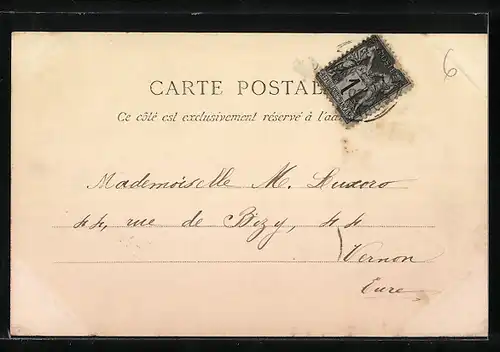 6
CARTE POSTAL
Ce côté est exclusivement réservé à l'ad
1
Mademoiselle M. Luxero
44, rue de Bizy, 44
Vernon
Eure